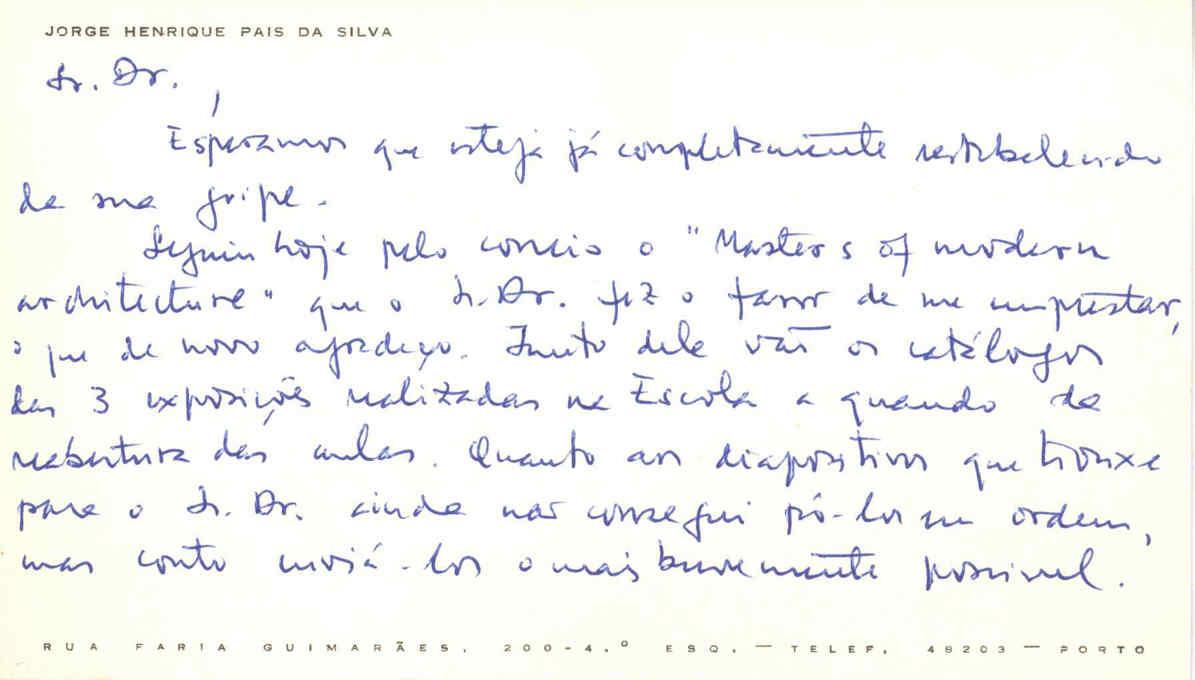 JORGE HENRIQUE PAIS DA SILVA
Sr. Dr.,
Esperamos que esteja já completamente restabelecido
da sua gripe.
Seguiu hoje pelo correio o "Masters of modern
architecture" que o Sr. Dr. fez o favor de me emprestar,
o que de novo agradeço. Junto dele vão os catálogos
das 3 exposições realizadas na Escola a quando da
reabertura das aulas. Quanto aos diapositivos que trouxe
para o Sr. Dr. ainda não consegui pô-los em ordem,
mas conto enviá-los o mais brevemente possível.
RUA FARIA GUIMARÃES, 200-4.º ESQ. — TELEF. 48203 — PORTO